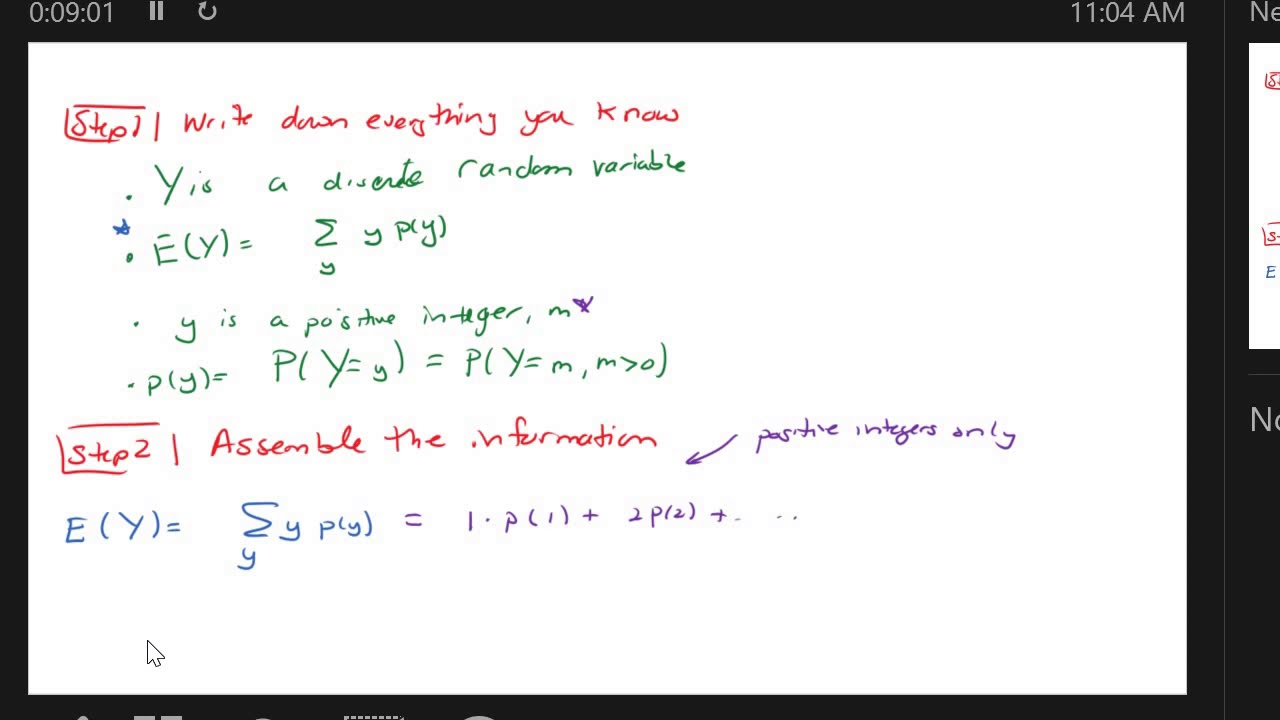 0:09:01
11:04 AM
Step 1 | Write down everything you know
• Y is a discrete random variable
* • E(Y) = Σ y p(y)
y
• y is a positive integer, m*
• p(y) = P(Y=y) = P(Y=m, m>0)
Step 2 | Assemble the information
positive integers only
E(Y) = Σ y p(y) = 1 · p(1) + 2p(2) + . . .
y